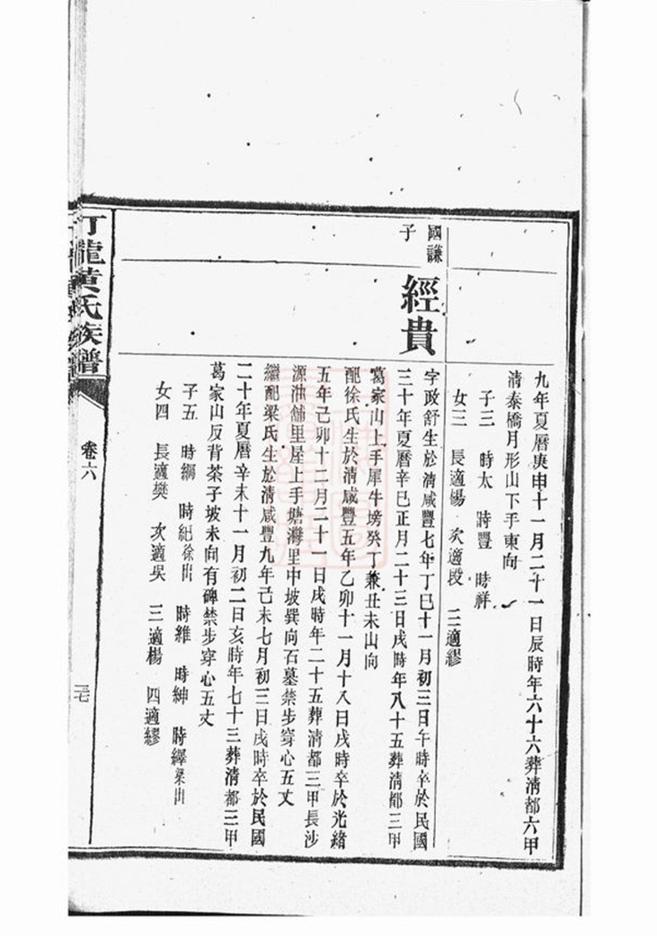 九年夏曆庚申十一月二十一日辰時年六十六葬清都六甲
清泰橋月形山下手東向
子三 時太 時豐 時祥
女三 長適楊 次適段 三適繆
國謙
子
經貴
字政舒生於清咸豐七年丁巳十一月初三日午時卒於民國
三十年夏曆辛巳正月二十三日戌時年八十五葬清都三甲
葛家山上手犀牛塝癸丁兼丑未山向
配徐氏生於清咸豐五年乙卯十一月十八日戌時卒於光緒
五年己卯十二月二十一日戌時年二十五葬清都三甲長沙
源油舖里屋上手塘灣里中坡巽向石墓禁步穿心五丈
繼配梁氏生於清咸豐九年己未七月初三日戌時卒於民國
二十年夏曆辛未十一月初二日亥時年七十三葬清都三甲
葛家山反背茶子坡未向有碑禁步穿心五丈
子五 時綱 時紀徐出 時維 時紳 時繹梁出
女四 長適樊 次適吳 三適楊 四適繆
龍黃氏族譜
卷六